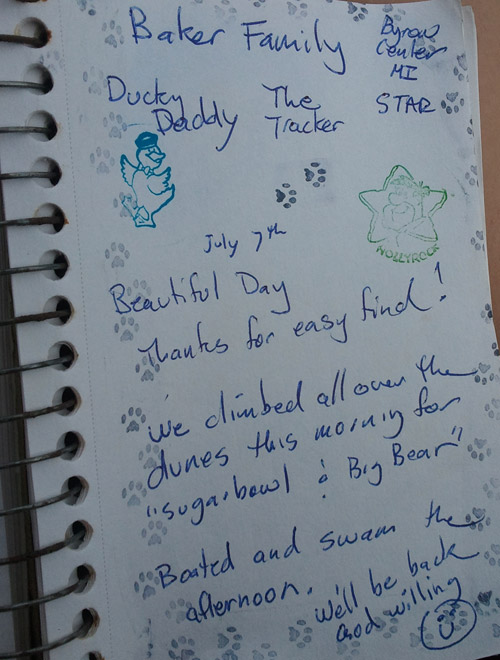 Baker Family
Byron
Center
MI
Ducky
Daddy
The
Tracker
STAR
HOLLYROCK
July 7th
Beautiful Day
Thanks for easy find!
We climbed all over the
dunes this morning for
"sugarbowl & Big Bear"
Boated and swam the
afternoon. We'll be back
God willing